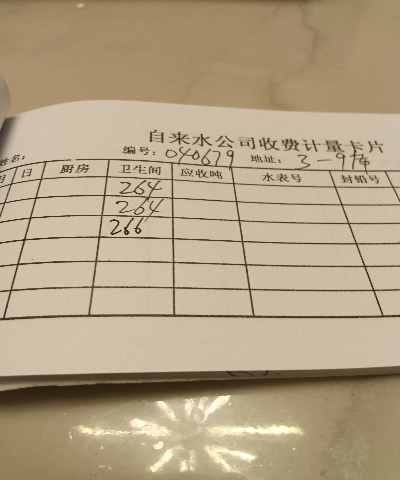 自来水公司收费计量卡片
姓名: 编号: 040679 地址: 3-9
月 日 厨房 卫生间 应收吨 水表号 封铅号
264
264
266